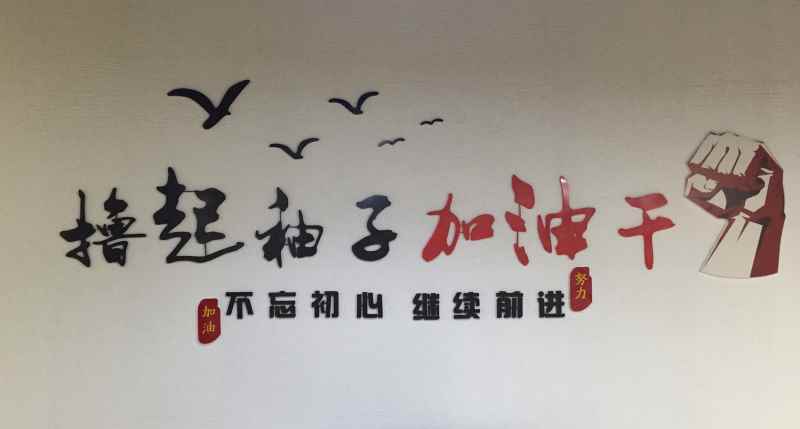 撸起袖子加油干
加油
不忘初心 继续前进
努力